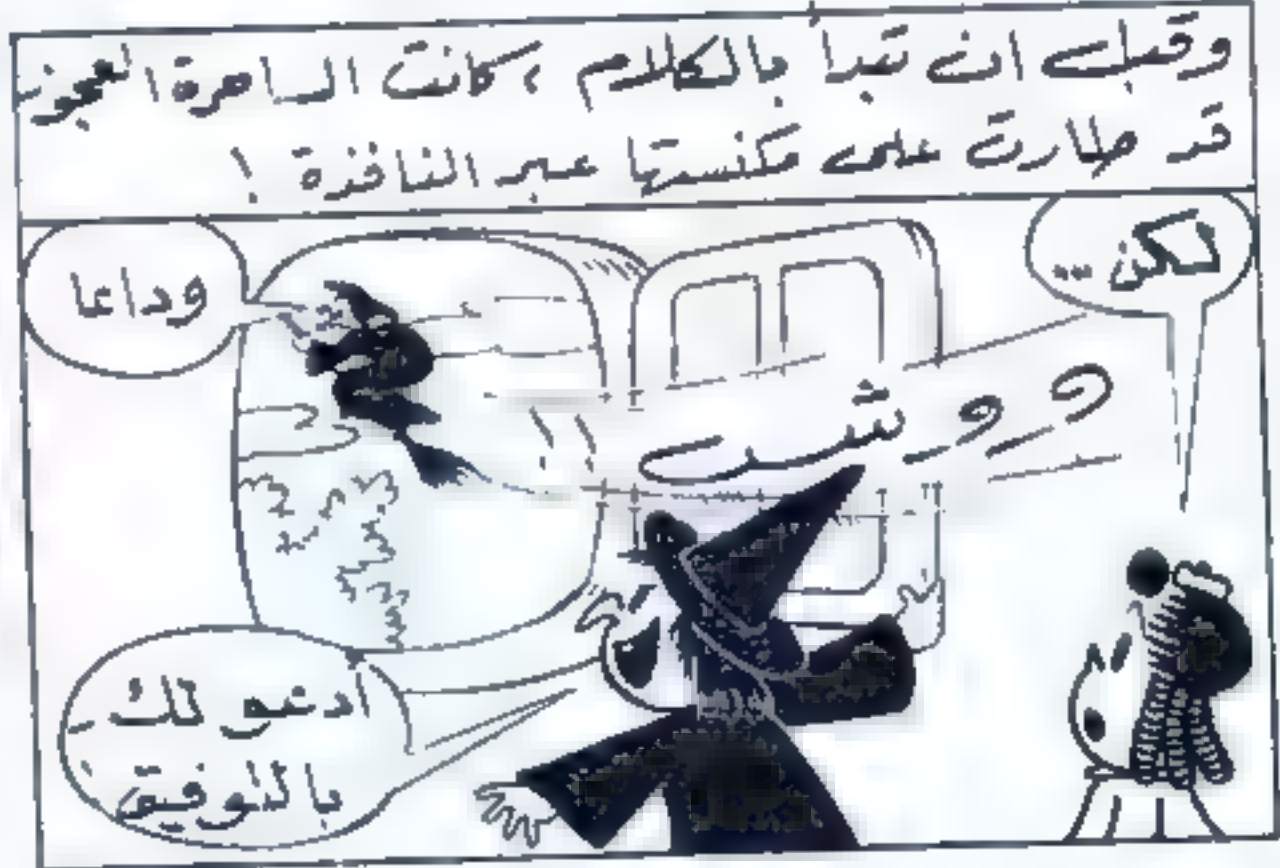 وقبل ان تبدا بالكلام ، كانت الساحرة العجوز
قد طارت على مكنستها عبر النافذة !
لكن ...
وداعا
ووش
ادعو لك
بالتوفيق